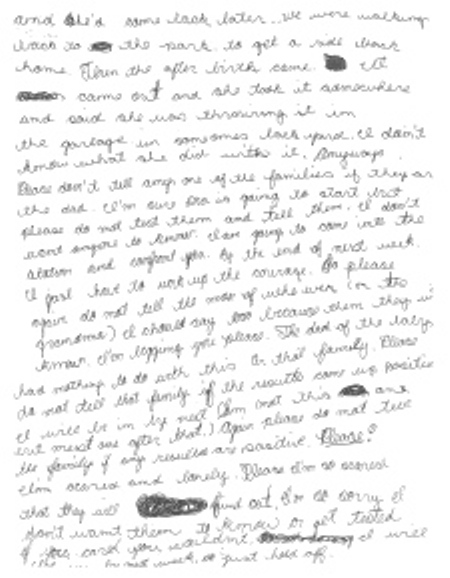 and she'd come back later. We were walking
back to the park to get a ride back
home. Then the after birth came. It
came out and she took it somewhere
and said she was throwing it in
the garbage in someones back yard. I don't
know what she did with it. Anyways.
Please don't tell any one of the families if they are
the dad. I'm sure Dna is going to start but
please do not test them and tell them. I don't
want anyone to know. I am going to come into the
station and confront you. By the end of next week.
I just have to work up the courage. So please
again do not tell the mom of who's were (or the
grandma) I should say too because them they'll
know. I'm begging you please. The dad of the baby
had nothing to do with this Or that family. Please
do not tell that family if the results come up positive
I will be in by next (Sun (not this and
but next one after that.) Again please do not tell
the family if any results are positive. Please!
I'm scared and lonely. Please I'm so scared
that they will find out. I'm so sorry I
don't want them to know or get tested
if you could you wouldn't. I will
by next week, so just hold off.